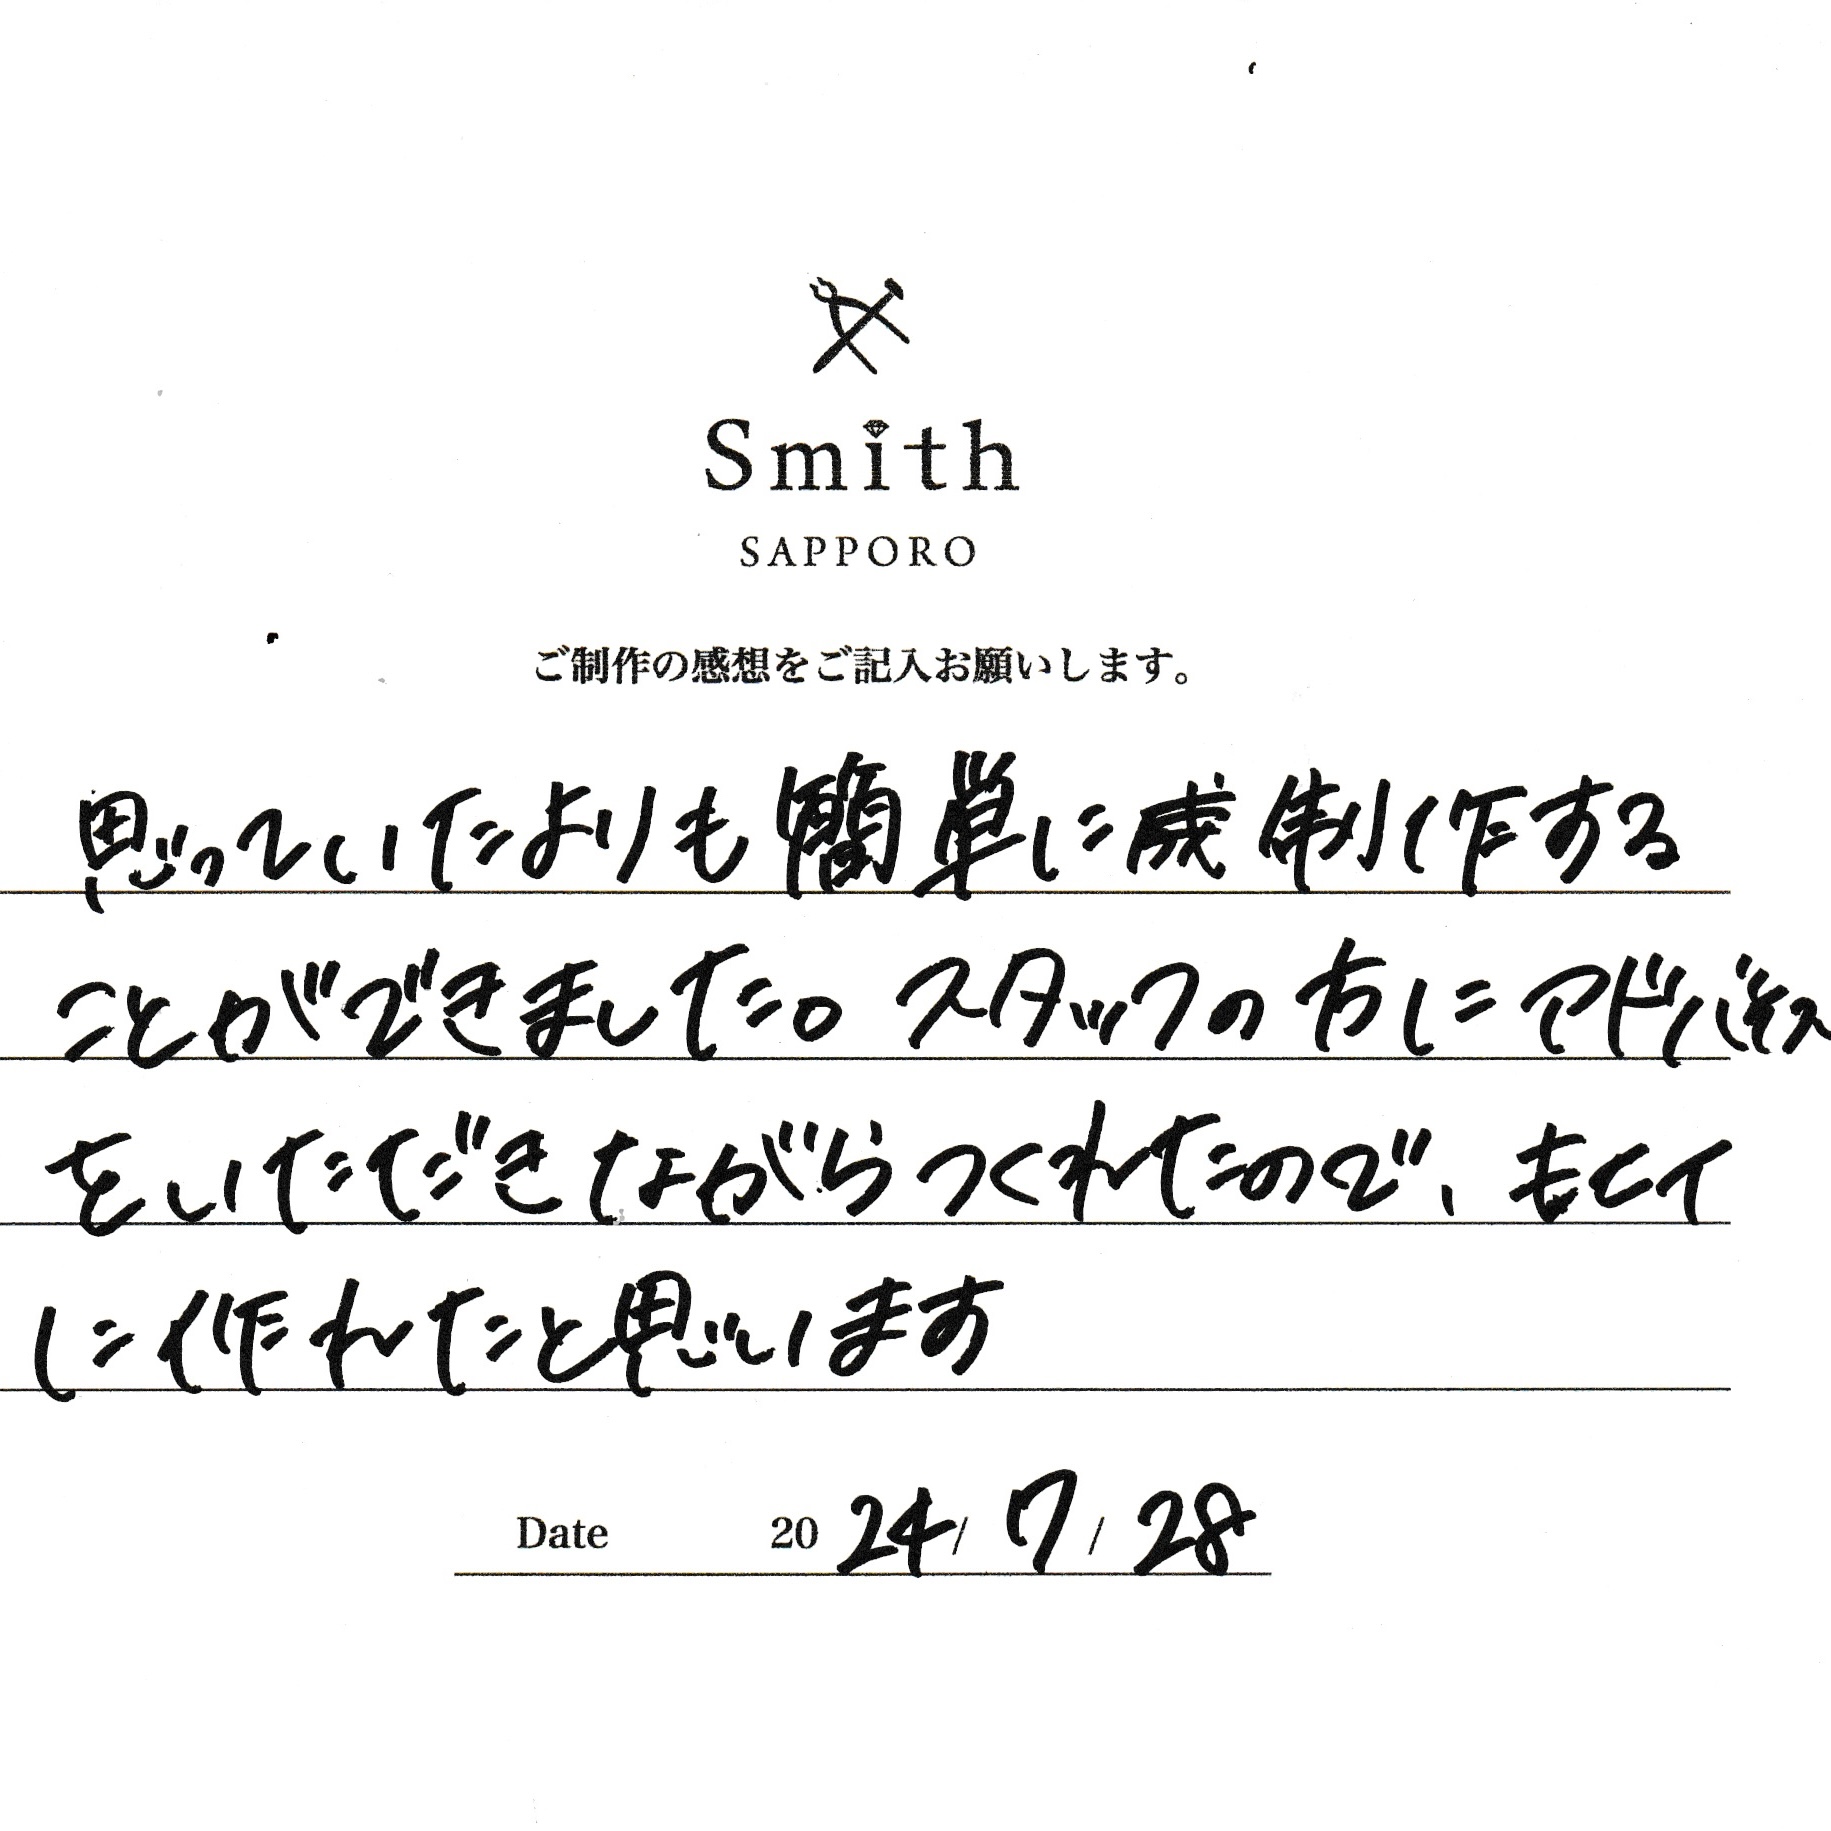 Smith
SAPPORO
ご制作の感想をご記入お願いします。
思っていたよりも簡単に制作する
ことができました。スタッフの方にアドバイス
をいただきながらつくれたので、
に作れたと思います
Date 2024/7/28